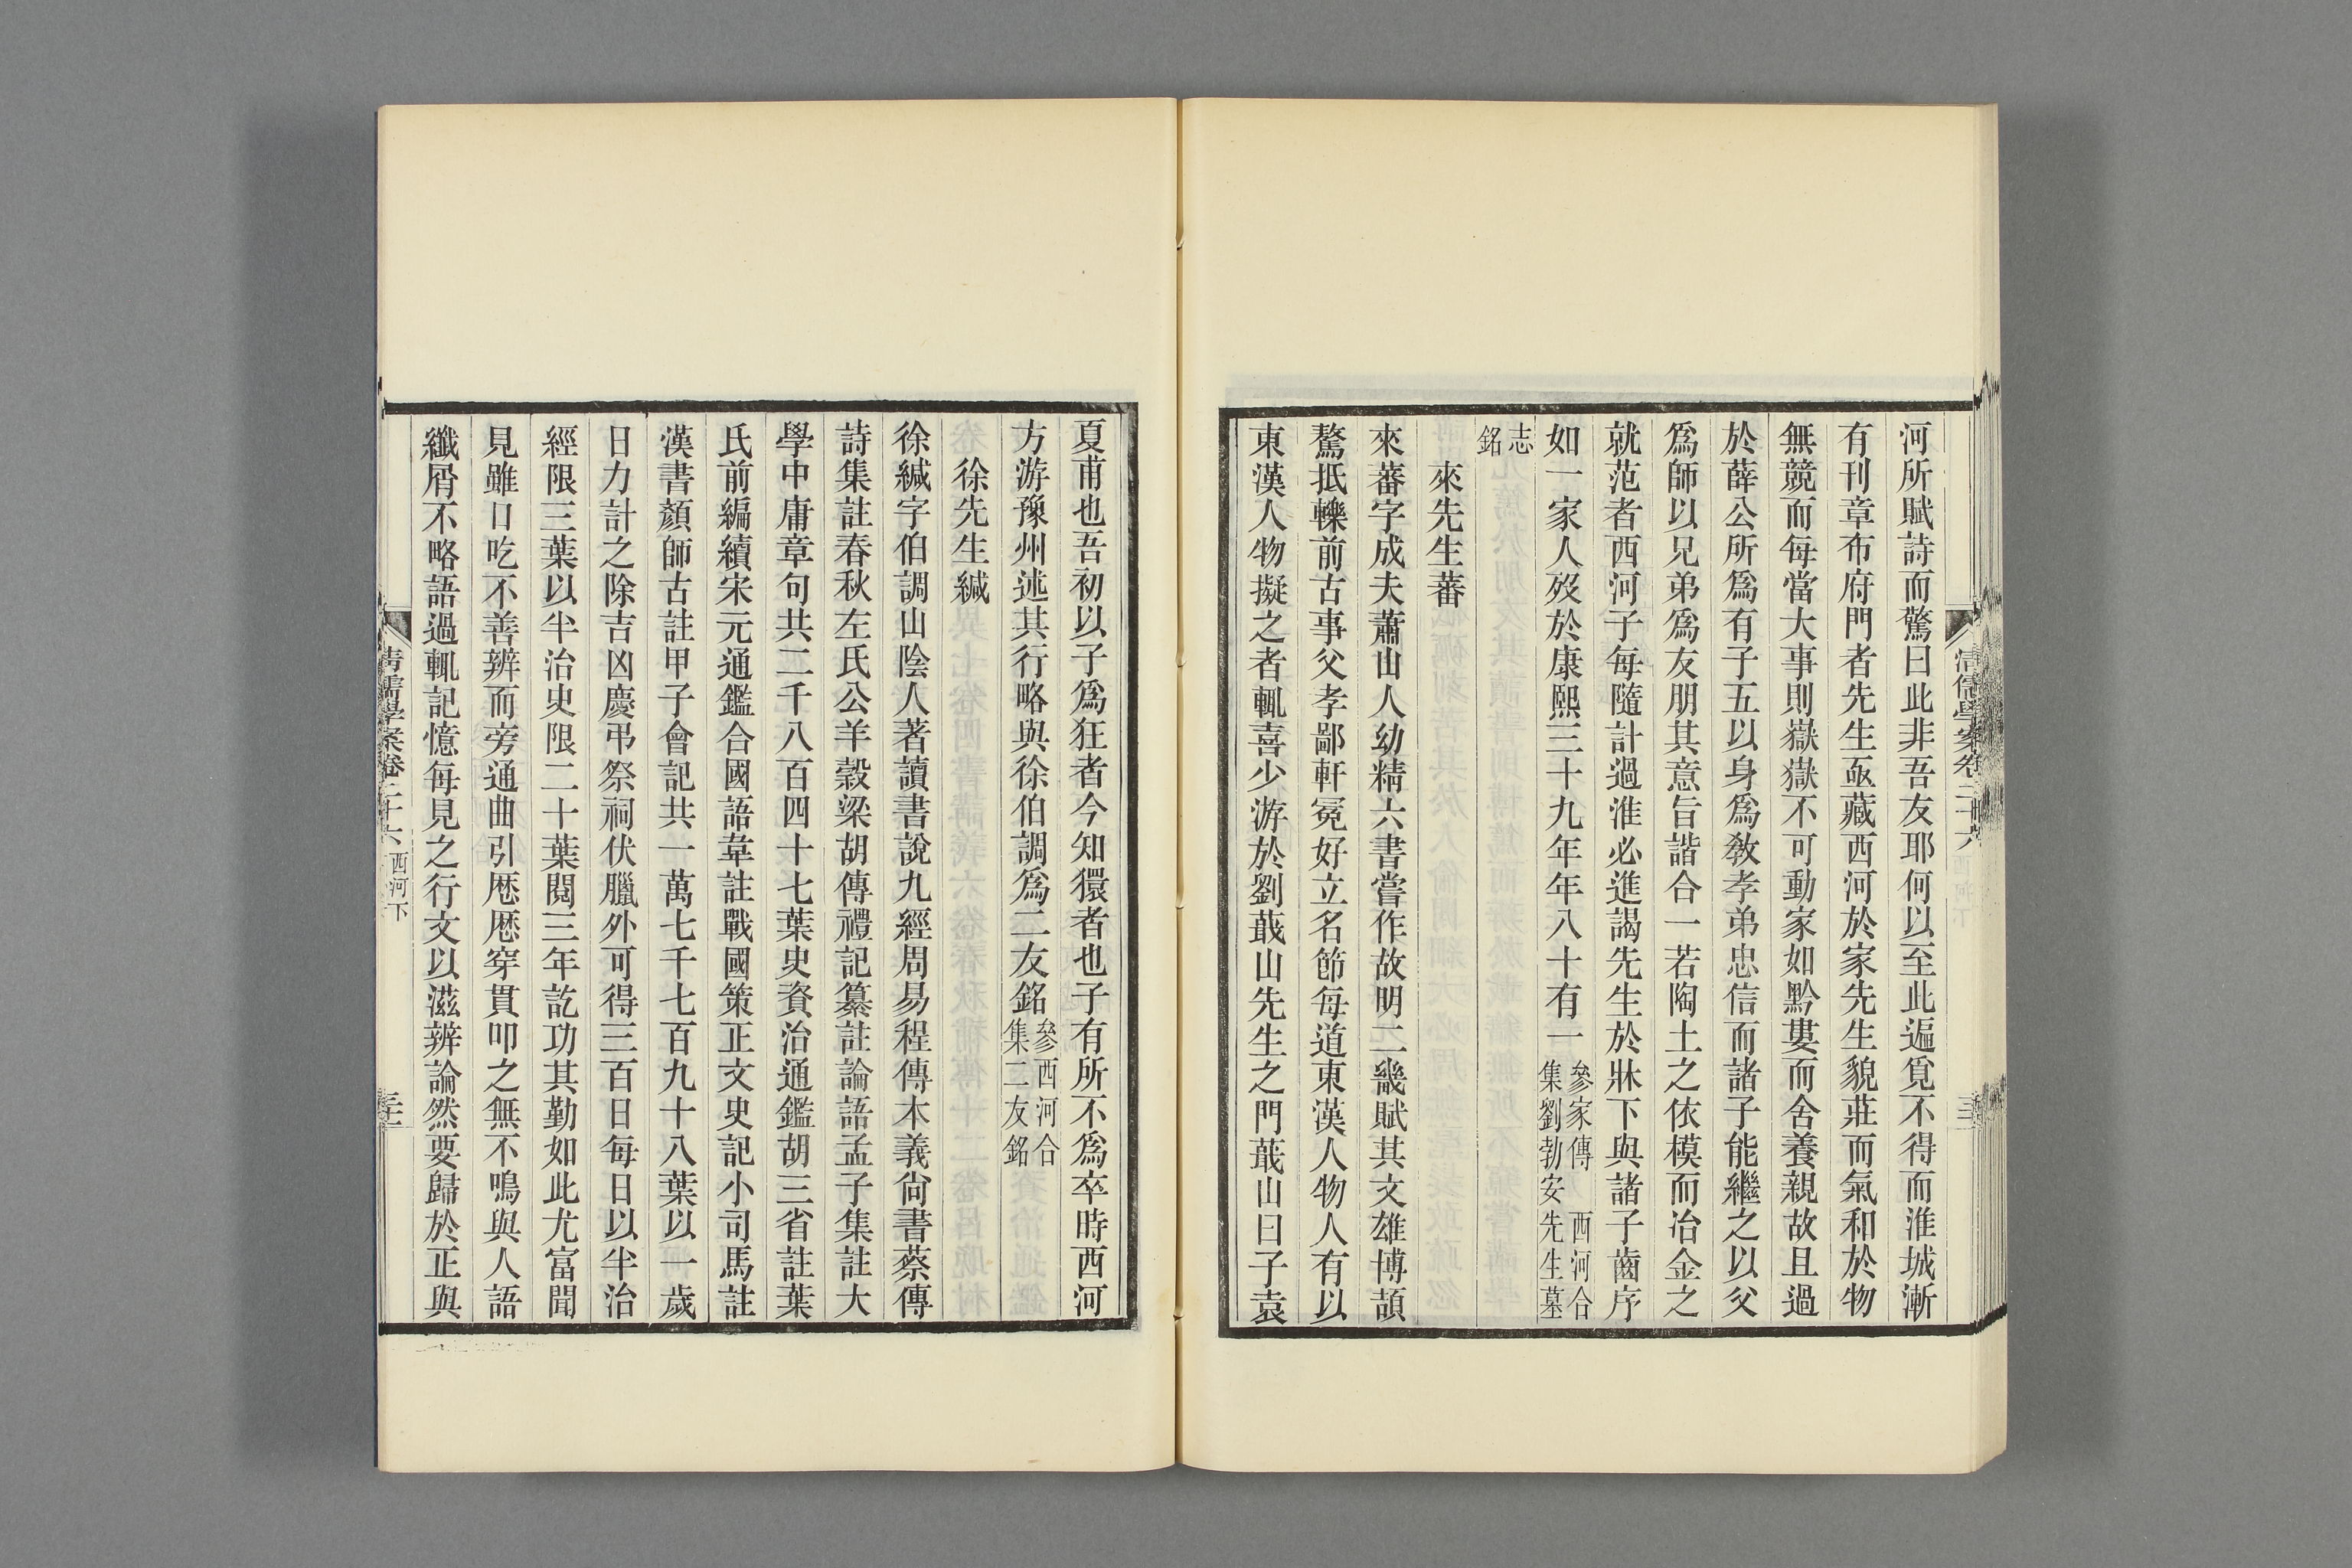 河所賦詩而驚曰此非吾友耶何以至此遍覓不得而淮城漸
有刊章布府門者先生亟藏西河於家先生貌莊而氣和於物
無競而每當大事則嶽嶽不可動家如黔婁而舍養親故且過
於薛公所爲有子五以身爲敎孝弟忠信而諸子能繼之以父
爲師以兄弟爲友朋其意旨諧合一若陶土之依模而冶金之
就范者西河子每隨計過淮必進謁先生於牀下與諸子齒序
如一家人歿於康熙三十九年年八十有一參家傳　西河合
集劉勃安先生墓
志
銘
來先生蕃
來蕃字成夫蕭山人幼精六書嘗作故明二畿賦其文雄博頡
驁抵轢前古事父孝鄙軒冕好立名節每道東漢人物人有以
東漢人物擬之者輒喜少游於劉蕺山先生之門蕺山曰子袁
夏甫也吾初以子爲狂者今知獧者也子有所不爲卒時西河
方游豫州述其行略與徐伯調爲二友銘參西河合
集二友銘
徐先生緘
徐緘字伯調山陰人著讀書說九經周易程傳本義尙書蔡傳
詩集註春秋左氏公羊穀梁胡傳禮記纂註論語孟子集註大
學中庸章句共二千八百四十七葉史資治通鑑胡三省註葉
氏前編續宋元通鑑合國語韋註戰國策正文史記小司馬註
漢書顏師古註甲子會記共一萬七千七百九十八葉以一歲
日力計之除吉凶慶弔祭祠伏臘外可得三百日每日以半治
經限三葉以半治史限二十葉閱三年訖功其勤如此尤富聞
見雖口吃不善辨而旁通曲引歷歷穿貫叩之無不鳴與人語
纖屑不略語過輒記憶每見之行文以滋辨論然要歸於正與
清儒學案卷二十六　西河下